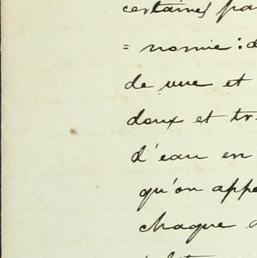 certaines
= nomie :
de vue et
doux et
d'eau en
qu'on appe
chaque